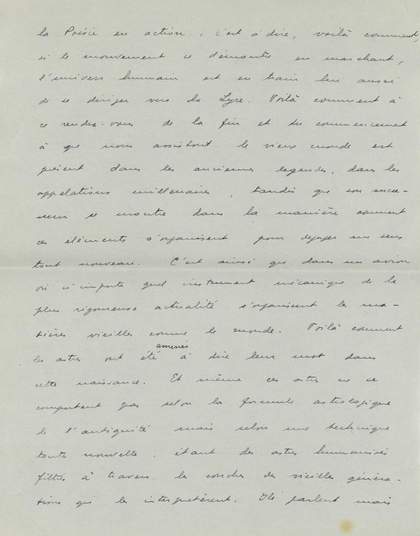 la Poésie en action, c'est à dire, voilà comment
si le mouvement se démontre en marchant,
l'univers humain est en train lui aussi
de se diriger vers la Lyre. Voilà comment à
ce rendez-vous de la fin et du commencement
à que nous assistons le vieux monde est
présent dans les anciennes legendes, dans les
appelations millenaires, tandis que son
se montre dans la manière comment
ces éléments s'organisent pour degager un sens
tout nouveau. C'est ainsi que dans un avion
ou n'importe quel instrument mécanique de la
plus rigoureuse actualité s'organisent les ma-
tières vieilles comme le monde. Voilà comment
les astres ont été amenés à dire leur mot dans
cette naissance. Et même ces astres ne se
comportent pas selon la formule astrologique
de l'antiquité mais selon une technique
toute nouvelle, étant des astres humanisés
filtrés à travers les couches des vieilles généra-
tions que les interpretèrent. Ils parlent mais